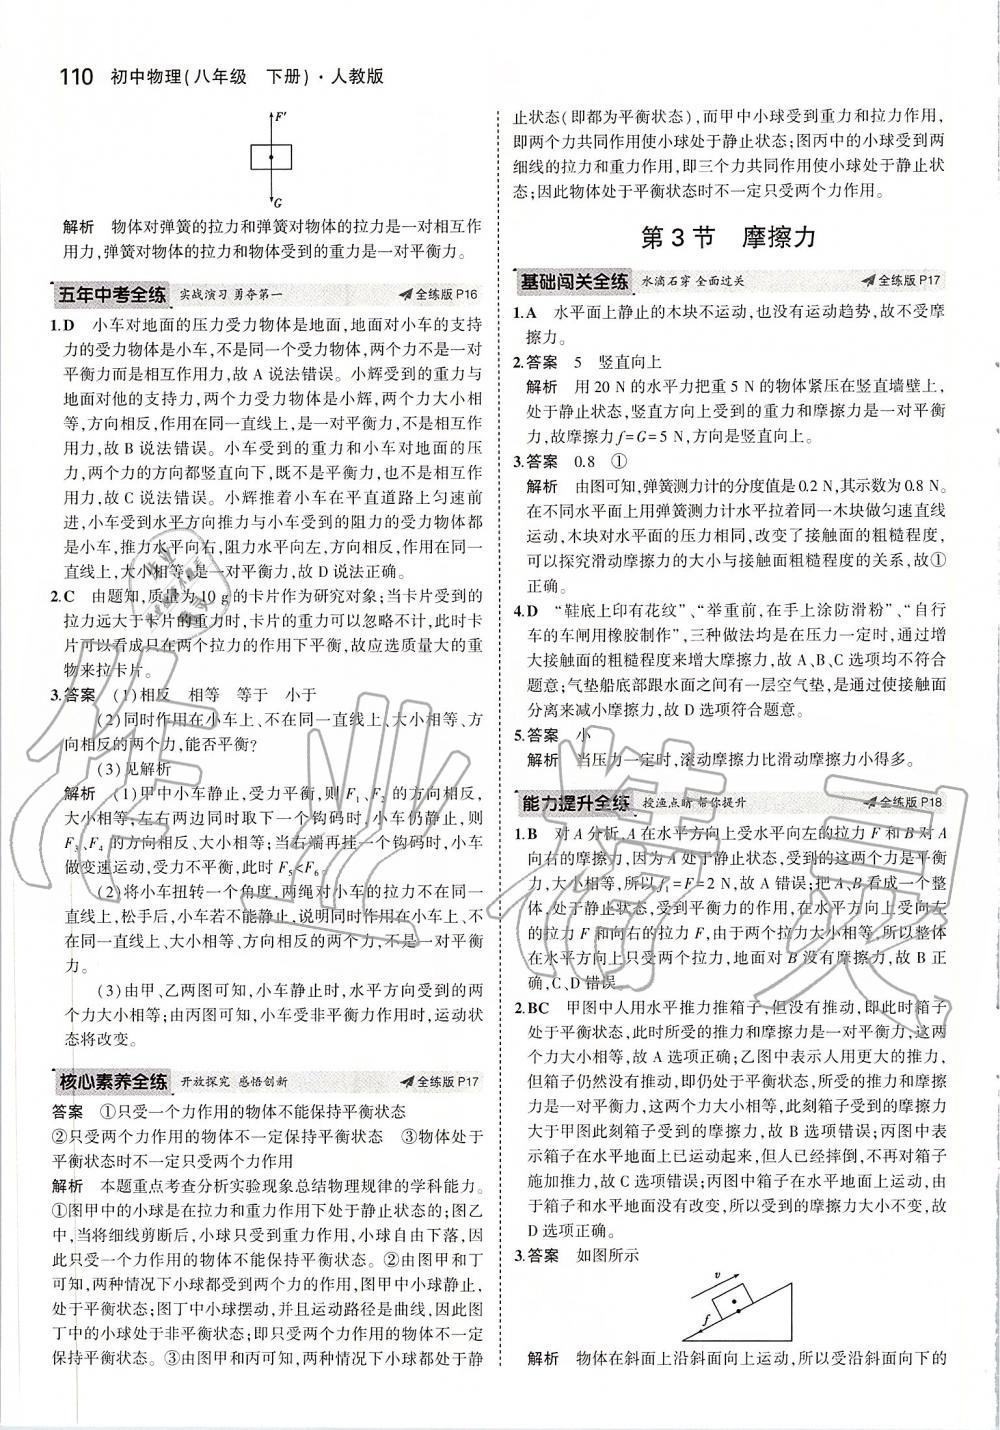 110 初中物理(八年级 下册)·人教版
F′
G
解析 物体对弹簧的拉力和弹簧对物体的拉力是一对相互作
用力,弹簧对物体的拉力和物体受到的重力是一对平衡力。
五年中考全练 实战演习 勇夺第一 全练版 P16
1.D 小车对地面的压力受力物体是地面,地面对小车的支持
力的受力物体是小车,不是同一个受力物体,两个力不是一对
平衡力而是相互作用力,故 A 说法错误。小辉受到的重力与
地面对他的支持力,两个力受力物体是小辉,两个力大小相
等,方向相反,作用在同一直线上,是一对平衡力,不是相互作
用力,故 B 说法错误。小车受到的重力和小车对地面的压
力,两个力的方向都竖直向下,既不是平衡力,也不是相互作
用力,故 C 说法错误。小辉推着小车在平直道路上匀速前
进,小车受到水平方向推力与小车受到的阻力的受力物体都
是小车,推力水平向右,阻力水平向左,方向相反,作用在同一
直线上,大小相等,是一对平衡力,故 D 说法正确。
2.C 由题知,质量为 10 g 的卡片作为研究对象;当卡片受到的
拉力远大于卡片的重力时,卡片的重力可以忽略不计,此时卡
片可以看成只在两个拉力的作用下平衡,故应选质量大的重
物来拉卡片。
3.答案 (1)相反 相等 等于 小于
(2)同时作用在小车上、不在同一直线上、大小相等、方
向相反的两个力,能否平衡?
(3)见解析
解析 (1)甲中小车静止,受力平衡,则 F₁、F₂ 的方向相反,
大小相等;左右两边同时取下一个钩码时,小车仍静止,则
F₃、F₄ 的方向相反、大小相等;当右端再挂一个钩码时,小车
做变速运动,受力不平衡,此时 F₅<F₆。
(2)将小车扭转一个角度,两绳对小车的拉力不在同一
直线上,松手后,小车若不能静止,说明同时作用在小车上、不
在同一直线上、大小相等、方向相反的两个力,不是一对平衡
力。
(3)由甲、乙两图可知,小车静止时,水平方向受到的两
个力大小相等;由丙图可知,小车受非平衡力作用时,运动状
态将改变。
核心素养全练 开放探究 感悟创新 全练版 P17
答案 ①只受一个力作用的物体不能保持平衡状态
②只受两个力作用的物体不一定保持平衡状态 ③物体处于
平衡状态时不一定只受两个力作用
解析 本题重点考查分析实验现象总结物理规律的学科能力。
①图甲中的小球是在拉力和重力作用下处于静止状态的;图乙
中,当将细线剪断后,小球只受到重力作用,小球自由下落,因
此只受一个力作用的物体不能保持平衡状态。②由图甲和丁
可知,两种情况下小球都受到两个力的作用,图甲中小球静止,
处于平衡状态;图丁中小球摆动,并且运动路径是曲线,因此图
丁中的小球处于非平衡状态;即只受两个力作用的物体不一定
保持平衡状态。③由图甲和丙可知,两种情况下小球都处于静
止状态(即都为平衡状态),而甲中小球受到重力和拉力作用,
即两个力共同作用使小球处于静止状态;图丙中的小球受到两
细线的拉力和重力作用,即三个力共同作用使小球处于静止状
态;因此物体处于平衡状态时不一定只受两个力作用。
第 3 节 摩擦力
基础闯关全练 水滴石穿 全面过关 全练版 P17
1.A 水平面上静止的木块不运动,也没有运动趋势,故不受摩
擦力。
2.答案 5 竖直向上
解析 用 20 N 的水平力把重 5 N 的物体紧压在竖直墙壁上,
处于静止状态,竖直方向上受到的重力和摩擦力是一对平衡
力,故摩擦力 f=G=5 N,方向是竖直向上。
3.答案 0.8 ①
解析 由图可知,弹簧测力计的分度值是 0.2 N,其示数为 0.8 N。
在不同水平面上用弹簧测力计水平拉着同一木块做匀速直线
运动,木块对水平面的压力相同,改变了接触面的粗糙程度,
可以探究滑动摩擦力的大小与接触面粗糙程度的关系,故①
正确。
4.D “鞋底上印有花纹”、“举重前,在手上涂防滑粉”、“自行
车的车闸用橡胶制作”,三种做法均是在压力一定时,通过增
大接触面的粗糙程度来增大摩擦力,故 A、B、C 选项均不符合
题意;气垫船底部跟水面之间有一层空气垫,是通过使接触面
分离来减小摩擦力,故 D 选项符合题意。
5.答案 小
解析 当压力一定时,滚动摩擦力比滑动摩擦力小得多。
能力提升全练 授渔点睛 帮你提升 全练版 P18
1.B 对 A 分析,A 在水平方向上受水平向左的拉力 F 和 B 对 A
向右的摩擦力,因为 A 处于静止状态,受到的这两个力是平衡
力,大小相等,所以 f₁=F=2 N,故 A 错误;把 A、B 看成一个整
体,处于静止状态,受到平衡力的作用,在水平方向上受向左
的拉力 F 和向右的拉力 F,由于两个力大小相等,所以整体
在水平方向上只受两个拉力,地面对 B 没有摩擦力,故 B 正
确,C、D 错误。
2.BC 甲图中人用水平推力推箱子,但没有推动,即此时箱子
处于平衡状态,此时所受的推力和摩擦力是一对平衡力,这两
个力大小相等,故 A 选项正确;乙图中表示人用更大的推力,
但箱子仍然没有推动,即仍处于平衡状态,所受的推力和摩擦
力是一对平衡力,这两个力大小相等,此刻箱子受到的摩擦力
大于甲图此刻箱子受到的摩擦力,故 B 选项错误;丙图中表
示箱子在水平地面上已运动起来,但人已经摔倒,不再对箱子
施加推力,故 C 选项错误;丙图箱子在水平地面上运动,由
于箱子和水平地面没有改变,所以受到的摩擦力大小不变,故
D 选项正确。
3.答案 如图所示
v
f
解析 物体在斜面上沿斜面向上运动,所以受沿斜面向下的
作业精灵